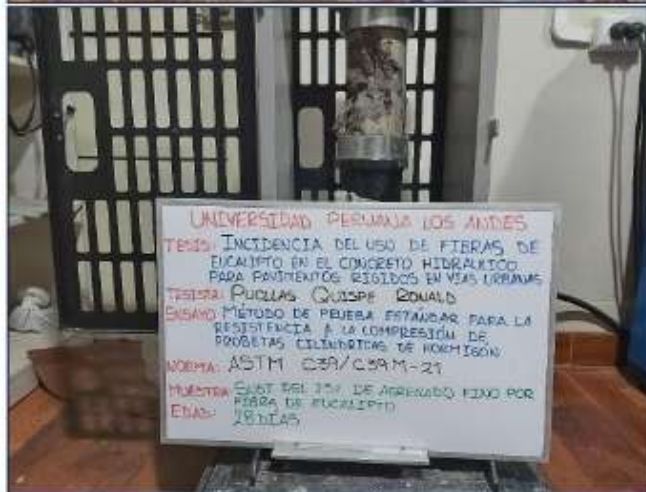 UNIVERSIDAD PERUANA LOS ANDES
TESIS: INCIDENCIA DEL USO DE FIBRAS DE
EUCALIPTO EN EL CONCRETO HIDRAULICO
PARA PAVIMENTOS RIGIDOS EN VÍAS URBANAS
TESISTA: PUCLLAS QUISPE RONALD
ENSAYO: MÉTODO DE PRUEBA ESTÁNDAR PARA LA
RESISTENCIA A LA COMPRESIÓN DE
PROBETAS CILINDRICAS DE HORMIGÓN
NORMA: ASTM C39/C39M-21
MUESTRA: SUST DEL DE AGREGADO FINO POR
FIBRA DE EUCALIPTO
EDAD: 28 DÍAS